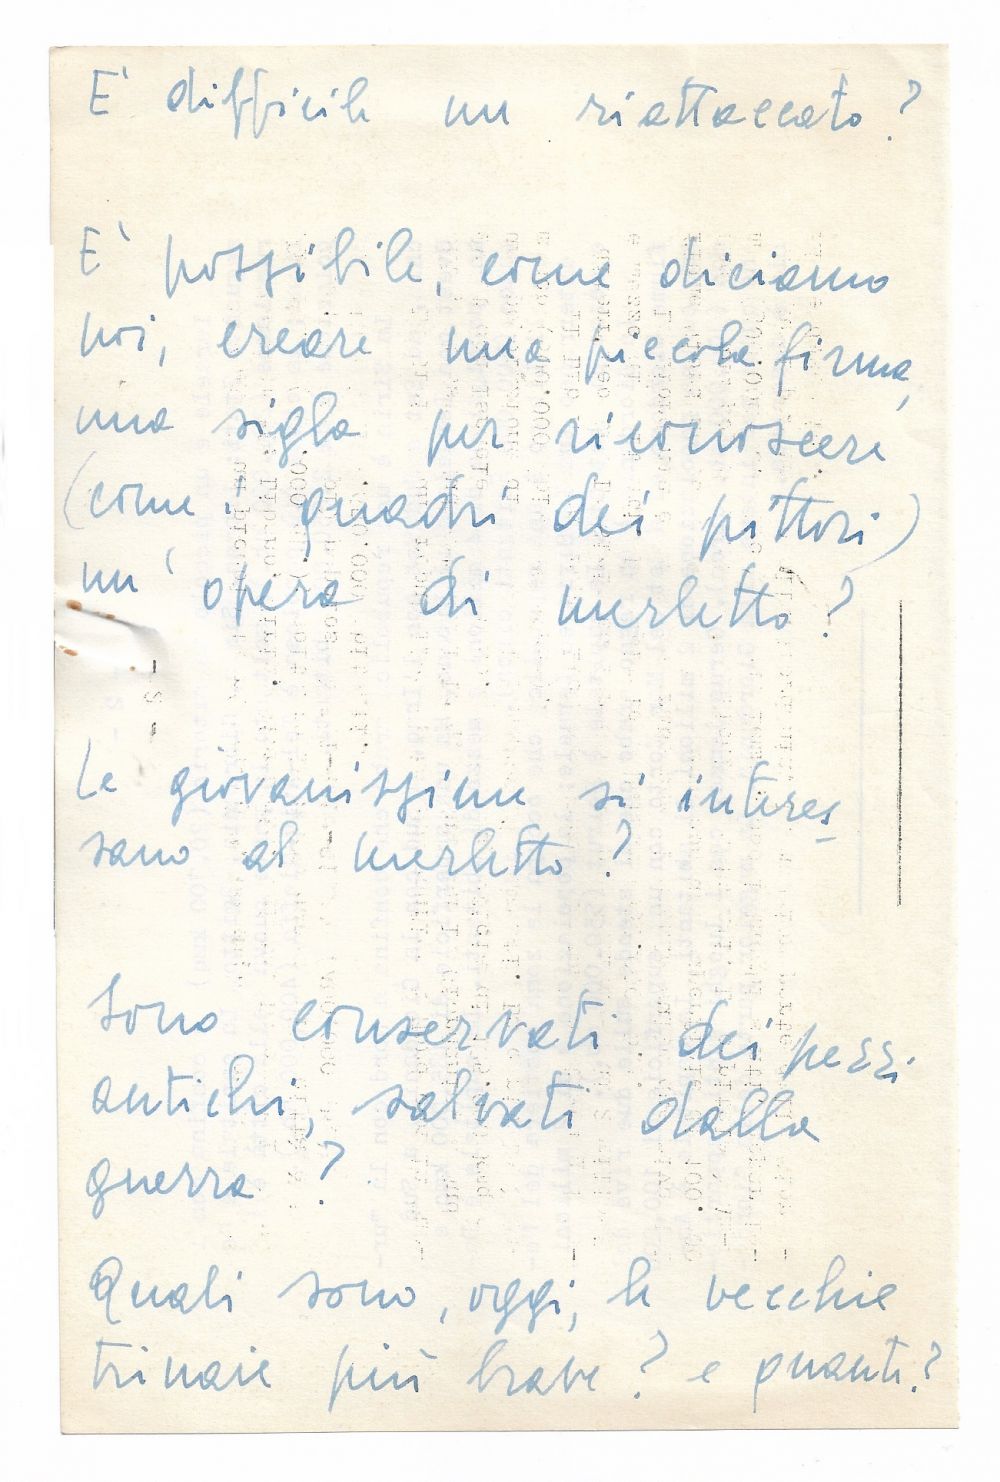 E' difficile un riattaccato?
E' possibile, come diciamo
noi, creare una piccola firma,
una sigla per riconoscere
(come i quadri dei pittori)
un'opera di merletto?
Le giovanissime si interes_
sano al merletto?
Sono conservati dei pezzi
antichi, salvati dalla
guerra?
Quali sono, oggi, le vecchie
trinaie più brave? e quanti?